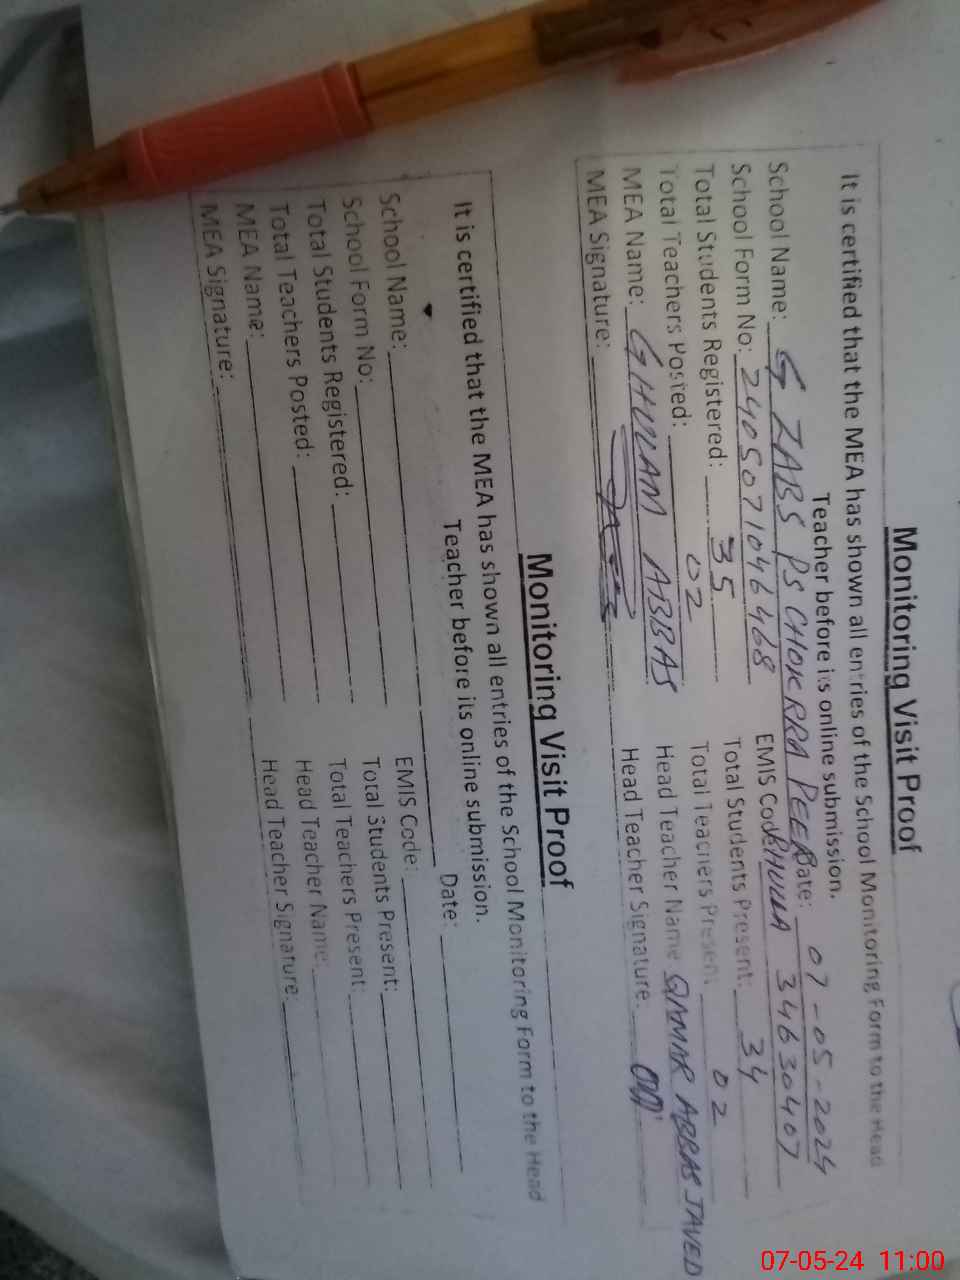 Monitoring Visit Proof
It is certified that the MEA has shown all entries of the School Monitoring Form to the Head
Teacher before its online submission.
School Name: G ZABS PS CHOKRRA PEER Date: 07-05-2024
School Form No: 240507104646 8 EMIS Code: 34630407
Total Students Registered: 35 Total Students Present: 34
Total Teachers Posted: 02 Total Teachers Present: 02
MEA Name: GHULAM ABBAS Head Teacher Name QAMAR ABBAS JAVED
MEA Signature: Head Teacher Signature:
Monitoring Visit Proof
It is certified that the MEA has shown all entries of the School Monitoring Form to the Head
Teacher before its online submission.
School Name: Date:
School Form No: EMIS Code:
Total Students Registered: Total Students Present:
Total Teachers Posted: Total Teachers Present:
MEA Name: Head Teacher Name:
MEA Signature: Head Teacher Signature:
07-05-24 11:00